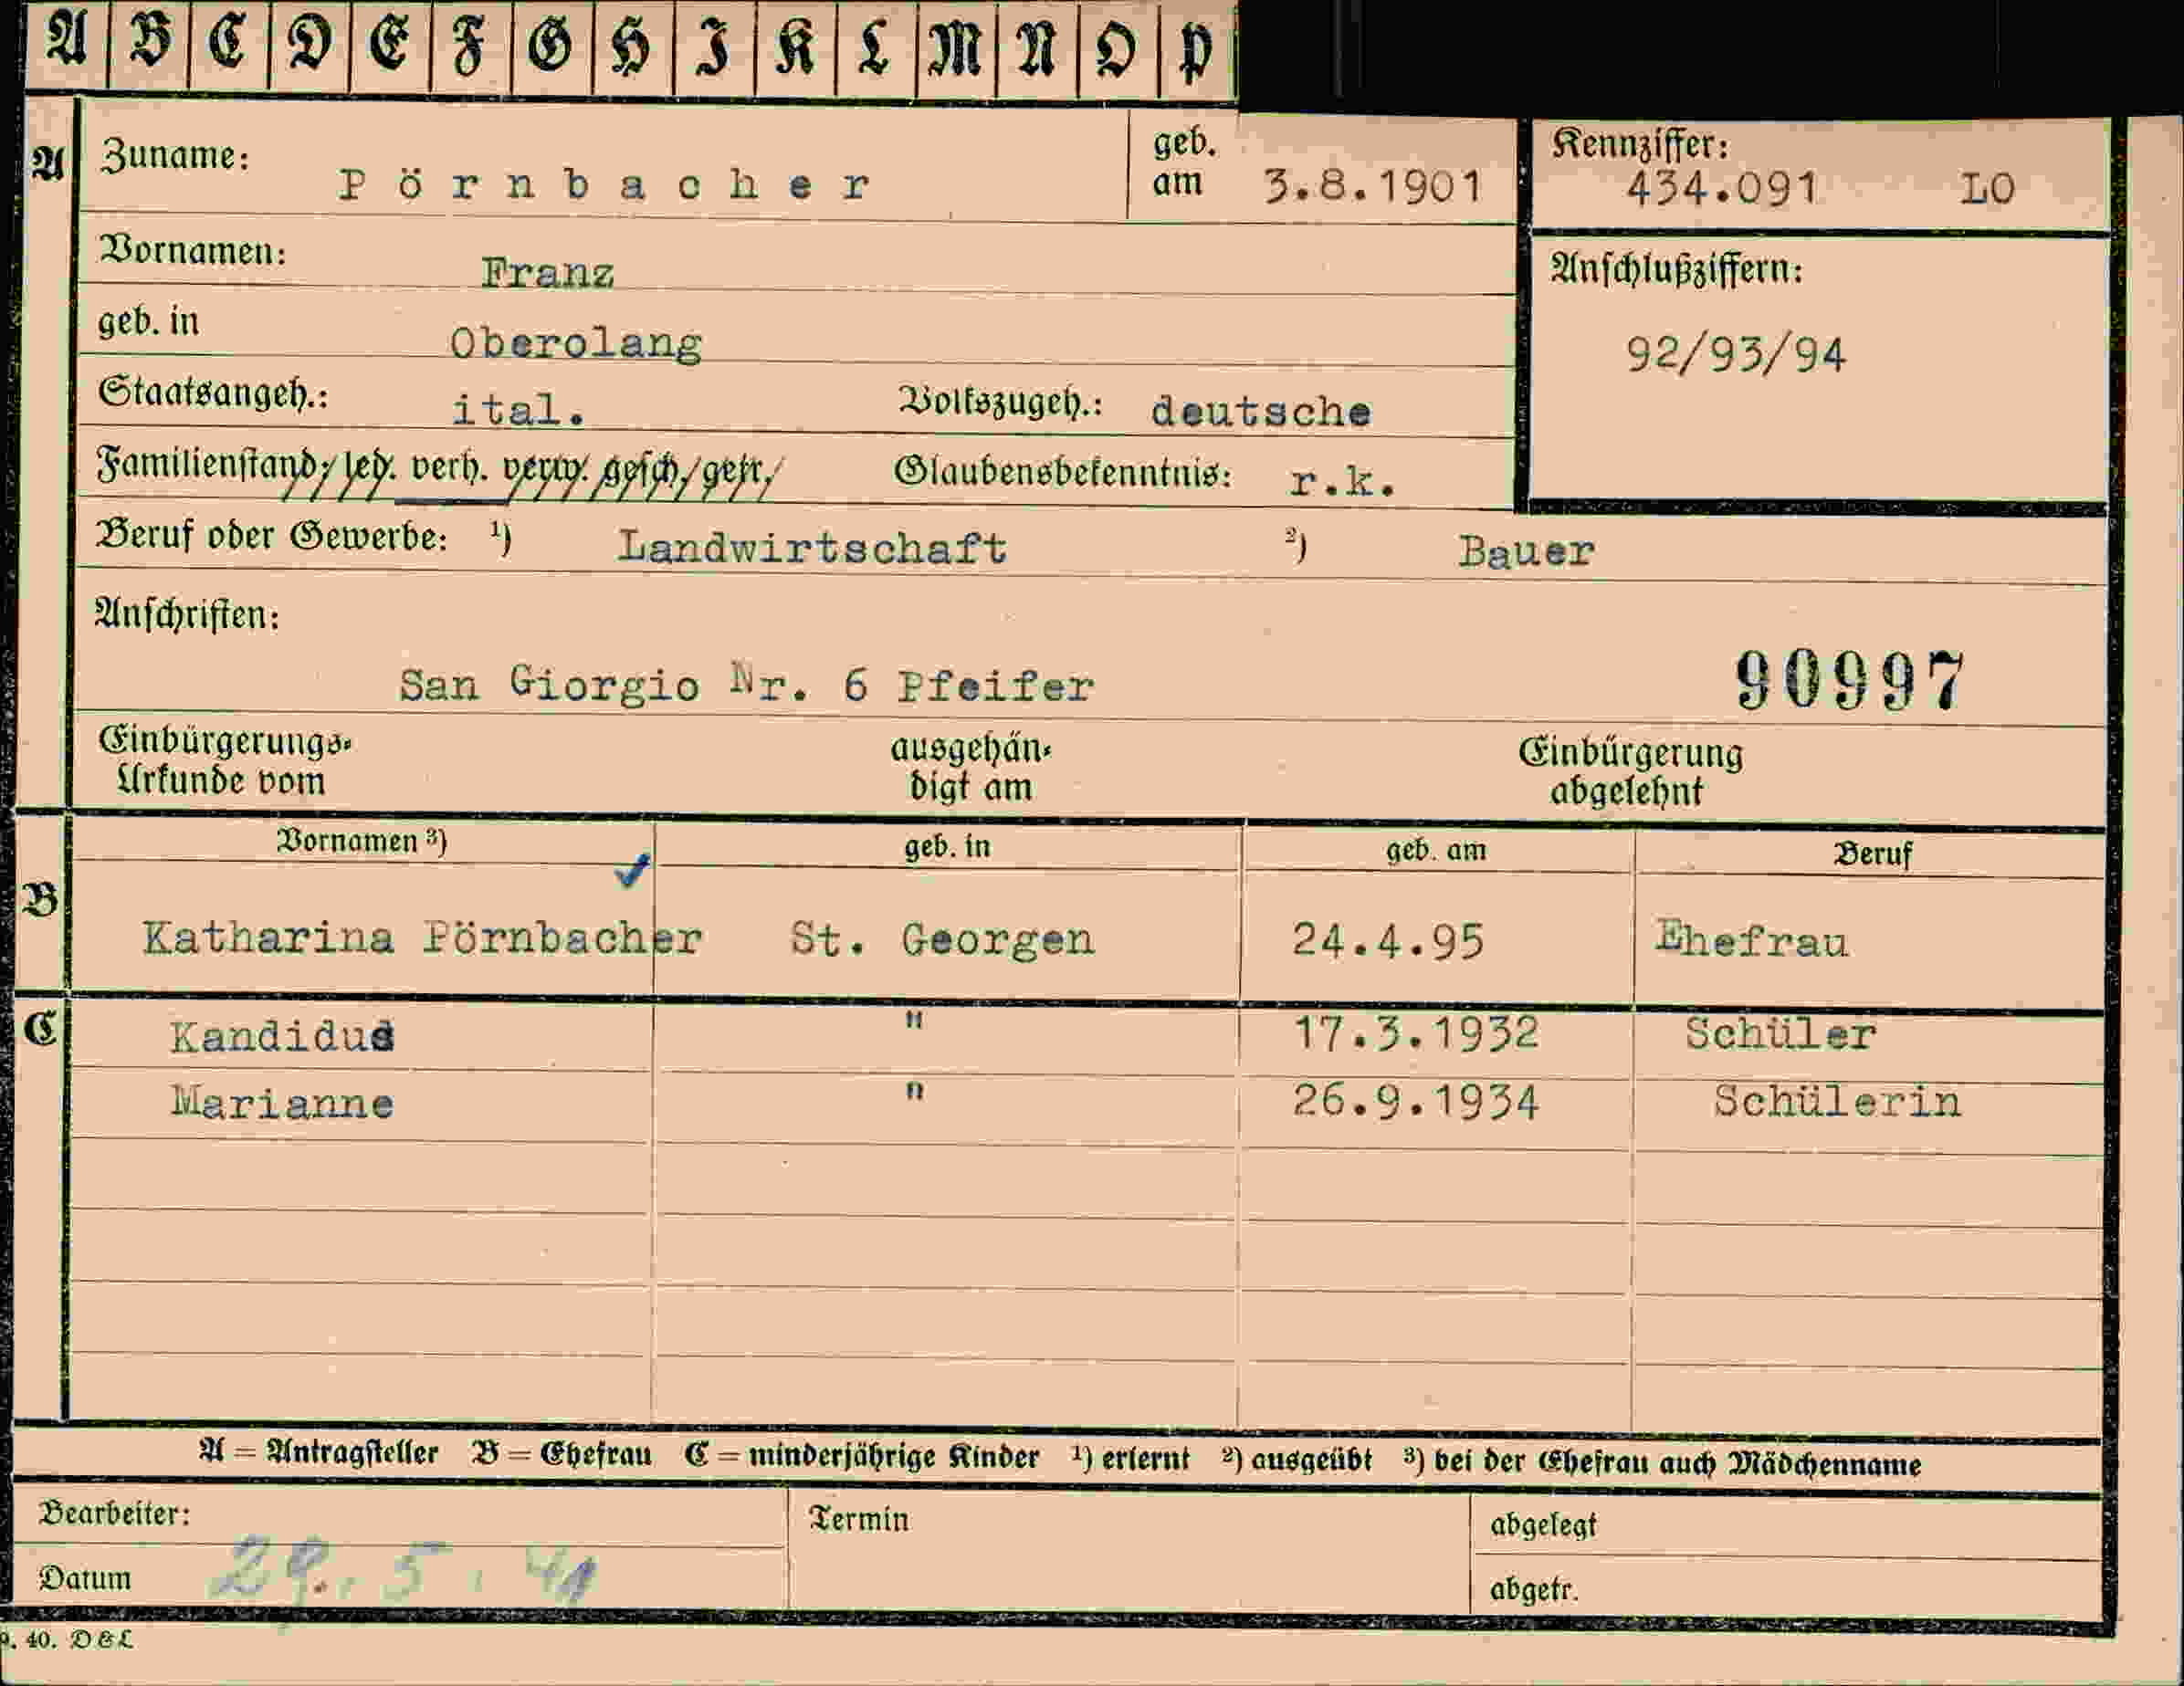 A B C D E F G H I K L M N O P
A Zuname: Pörnbacher geb. am 3.8.1901 Kennziffer: 434.091 LO
Vornamen: Franz Anschlußziffern:
geb. in Oberolang 92/93/94
Staatsangeh.: ital. Volkszugeh.: deutsche
Familienstand: led. verh. verw. gesch. getr. Glaubensbekenntnis: r.k.
Beruf oder Gewerbe: ¹) Landwirtschaft ²) Bauer
Anschriften:
San Giorgio Nr. 6 Pfeifer 90997
Einbürgerungs- ausgehän- Einbürgerung
Urkunde vom digt am abgelehnt
Vornamen ³) geb. in geb. am Beruf
B Katharina Pörnbacher St. Georgen 24.4.95 Ehefrau
C Kandidus " 17.3.1932 Schüler
Marianne " 26.9.1934 Schülerin
A = Antragsteller B = Ehefrau C = minderjährige Kinder ¹) erlernt ²) ausgeübt ³) bei der Ehefrau auch Mädchenname
Bearbeiter: Termin abgelegt
Datum 29. 5. 41 abgetr.
9. 40. D&L